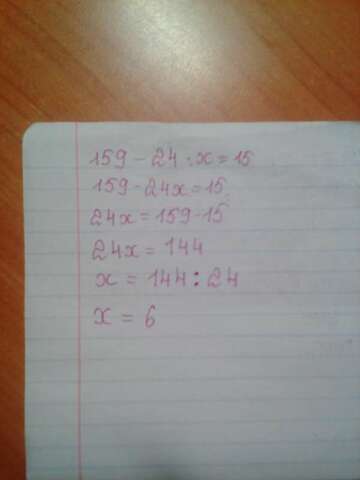 159 - 24 · x = 15
159 - 24x = 15
24x = 159 - 15
24x = 144
x = 144 : 24
x = 6